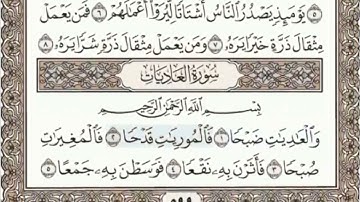 ٥ يَوْمَئِذٍ يَصْدُرُ ٱلنَّاسُ أَشْتَاتًا لِّيُرَوْا۟ أَعْمَـٰلَهُمْ ٦ فَمَن يَعْمَلْ
مِثْقَالَ ذَرَّةٍ خَيْرًا يَرَهُۥ ٧ وَمَن يَعْمَلْ مِثْقَالَ ذَرَّةٍ شَرًّا يَرَهُۥ ٨
سُورَةُ العَادِيَاتِ
بِسْمِ ٱللَّهِ ٱلرَّحْمَـٰنِ ٱلرَّحِيمِ
وَٱلْعَـٰدِيَـٰتِ ضَبْحًا ١ فَٱلْمُورِيَـٰتِ قَدْحًا ٢ فَٱلْمُغِيرَٰتِ
صُبْحًا ٣ فَأَثَرْنَ بِهِۦ نَقْعًا ٤ فَوَسَطْنَ بِهِۦ جَمْعًا ٥
٥٩٩